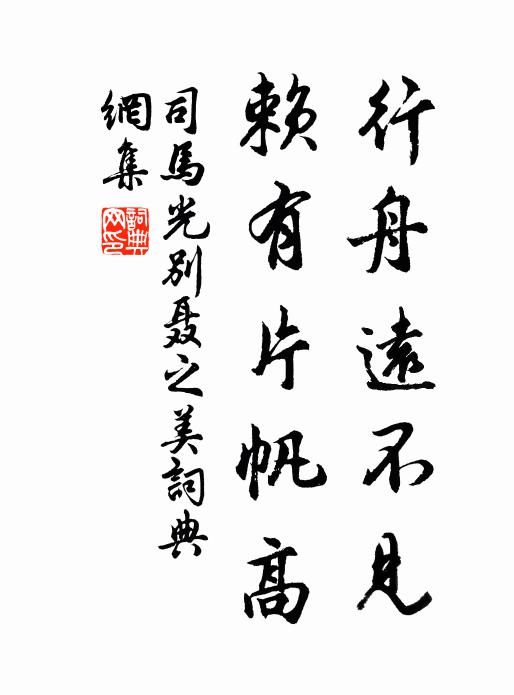 行舟遠不見
賴有片帆高
司馬光別聂之美詞典
網集
詞典
网印